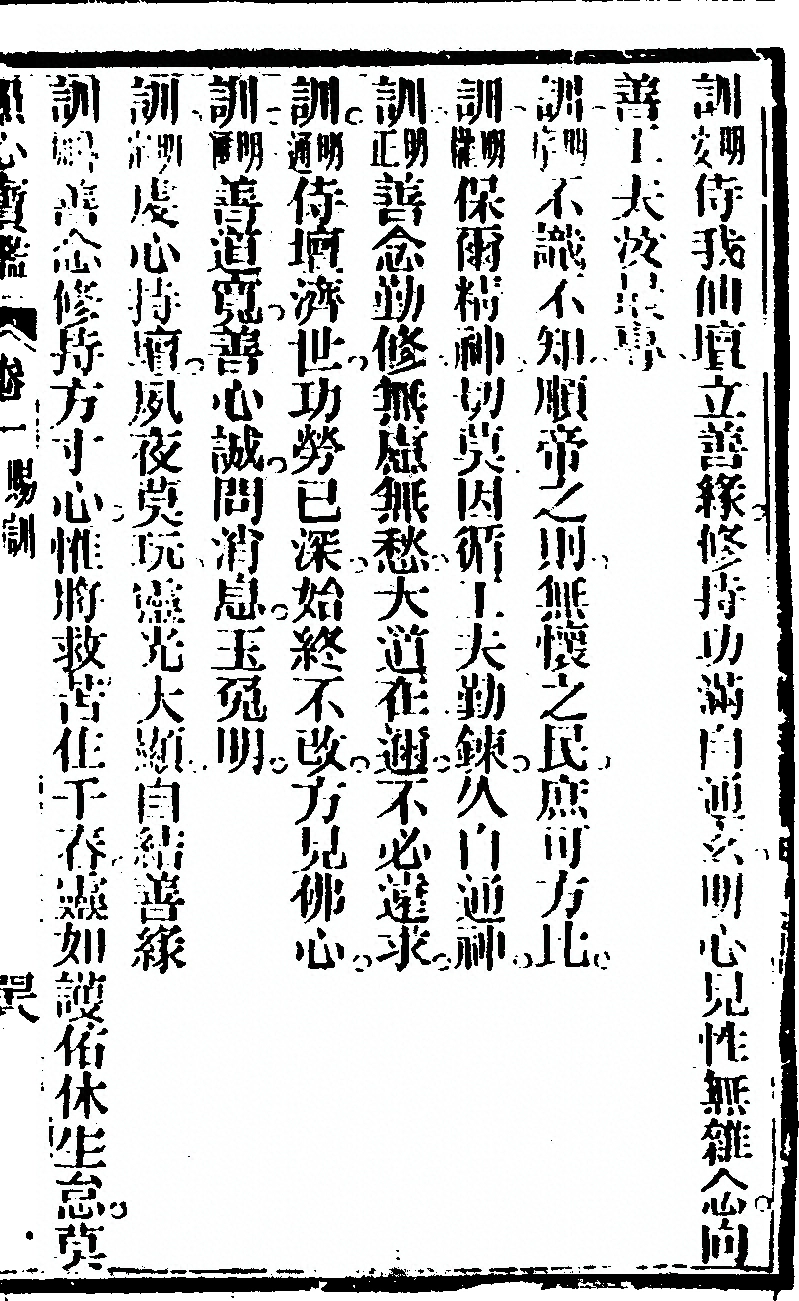 訓明安侍我仙壇立善緣修持功滿自通玄明心見性無雜念向
善工夫汝最專
訓明不識不知順帝之則無懷之民庶可方比
訓明保爾精神切莫因循工夫勤鍊久自通神
訓明正善念勤修無慮無愁大道在邇不必遠求
訓明通侍壇濟世功勞已深始終不改方見佛心
訓明善道寬善心誠問消息玉兔明
訓明虔心持壇夙夜莫玩靈光大顯自結善緣
訓善念修持方寸心惟將救苦住千春靈如護佑休生怠莫
心寶鑑 卷一 賜訓